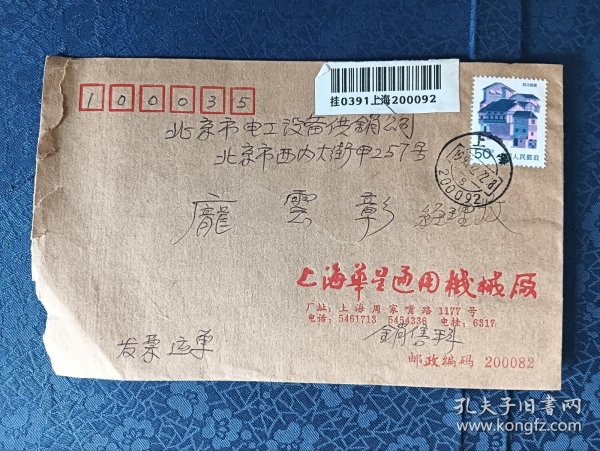 100035
挂0391上海200092
四川民居
50
中国人民邮政
上海
200092
北京市电工设备供銷公司
北京市西内大街甲257号
龐雲彰 経理收
上海華星通用機械厰
厂址：上海周家嘴路1177号
电话：5461713 5454336 电挂：6317
銷售科
发票运单
邮政编码 200082
孔夫子旧书网
www.kongfz.com